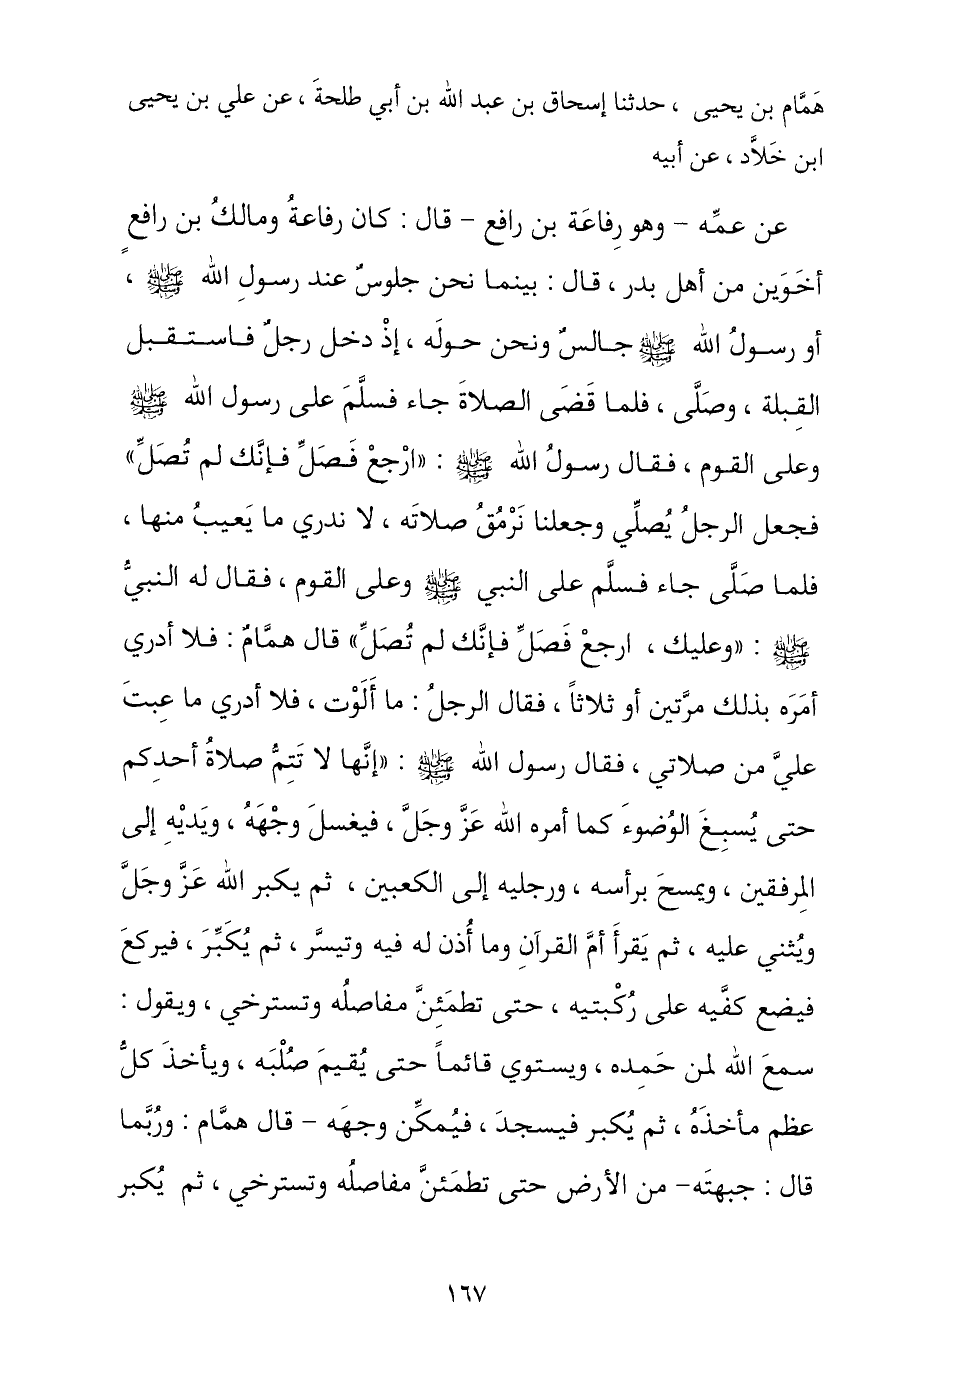 هَمَّام بن يحيى ، حدثنا إسحاق بن عبد الله بن أبي طلحةَ ، عن علي بن يحيى
ابن خَلاَّد ، عن أبيه
عن عمِّه – وهو رِفاعَة بن رافع – قال : كان رفاعةُ ومالكُ بن رافعٍ
أخَوَين من أهل بدر ، قال : بينما نحن جلوسٌ عند رسولِ الله ﷺ ،
أو رسولُ الله ﷺ جالسٌ ونحن حولَه ، إذْ دخل رجلٌ فاستقبل
القِبلة ، وصَلَّى ، فلما قَضَى الصلاةَ جاء فسلَّمَ على رسول الله ﷺ
وعلى القوم ، فقال رسولُ الله ﷺ : «ارْجعْ فَصَلِّ فإنَّك لم تُصَلِّ»
فجعل الرجلُ يُصلِّي وجعلنا نَرْمُقُ صلاتَه ، لا ندري ما يَعيبُ منها ،
فلما صَلَّى جاء فسلَّم على النبي ﷺ وعلى القوم ، فقال له النبيُّ
ﷺ : «وعليك ، ارجعْ فَصَلِّ فإنَّك لم تُصَلِّ» قال همَّامٌ : فلا أدري
أمَرَه بذلك مرَّتين أو ثلاثاً ، فقال الرجلُ : ما أَلَوْت ، فلا أدري ما عِبتَ
عليَّ من صلاتي ، فقال رسول الله ﷺ : «إنَّها لا تَتِمُّ صلاةُ أحدِكم
حتى يُسبِغَ الوُضوءَ كما أمره الله عَزَّ وجَلَّ ، فيغسلَ وجْهَهُ ، ويَديْهِ إلى
المِرفقين ، ويمسحَ برأسه ، ورجليه إلى الكعبين ، ثم يكبر الله عَزَّ وجَلَّ
ويُثني عليه ، ثم يَقرأَ أمَّ القرآنِ وما أُذن له فيه وتيسَّر ، ثم يُكَبِّرَ ، فيركعَ
فيضع كفَّيه على رُكْبتيه ، حتى تطمَئِنَّ مفاصلُه وتسترخي ، ويقول :
سمعَ الله لمن حَمِده ، ويستوي قائماً حتى يُقيمَ صُلْبَه ، ويأخذَ كلُّ
عظم مأخذَهُ ، ثم يُكبر فيسجدَ ، فيُمكِّن وجهَه – قال همَّام : ورُبَّما
قال : جبهتَه– من الأرض حتى تطمَئنَّ مفاصلُه وتسترخي ، ثم يُكبر
١٦٧